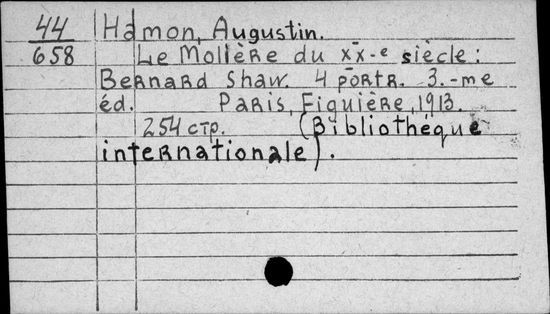 44 Hamon, Augustin.
658 Le Molière du XX-e siècle:
Bernard Shaw. 4 portr. 3.-me
éd. Paris, Figuière, 1913.
254 стр. (Bibliothéque
internationale).